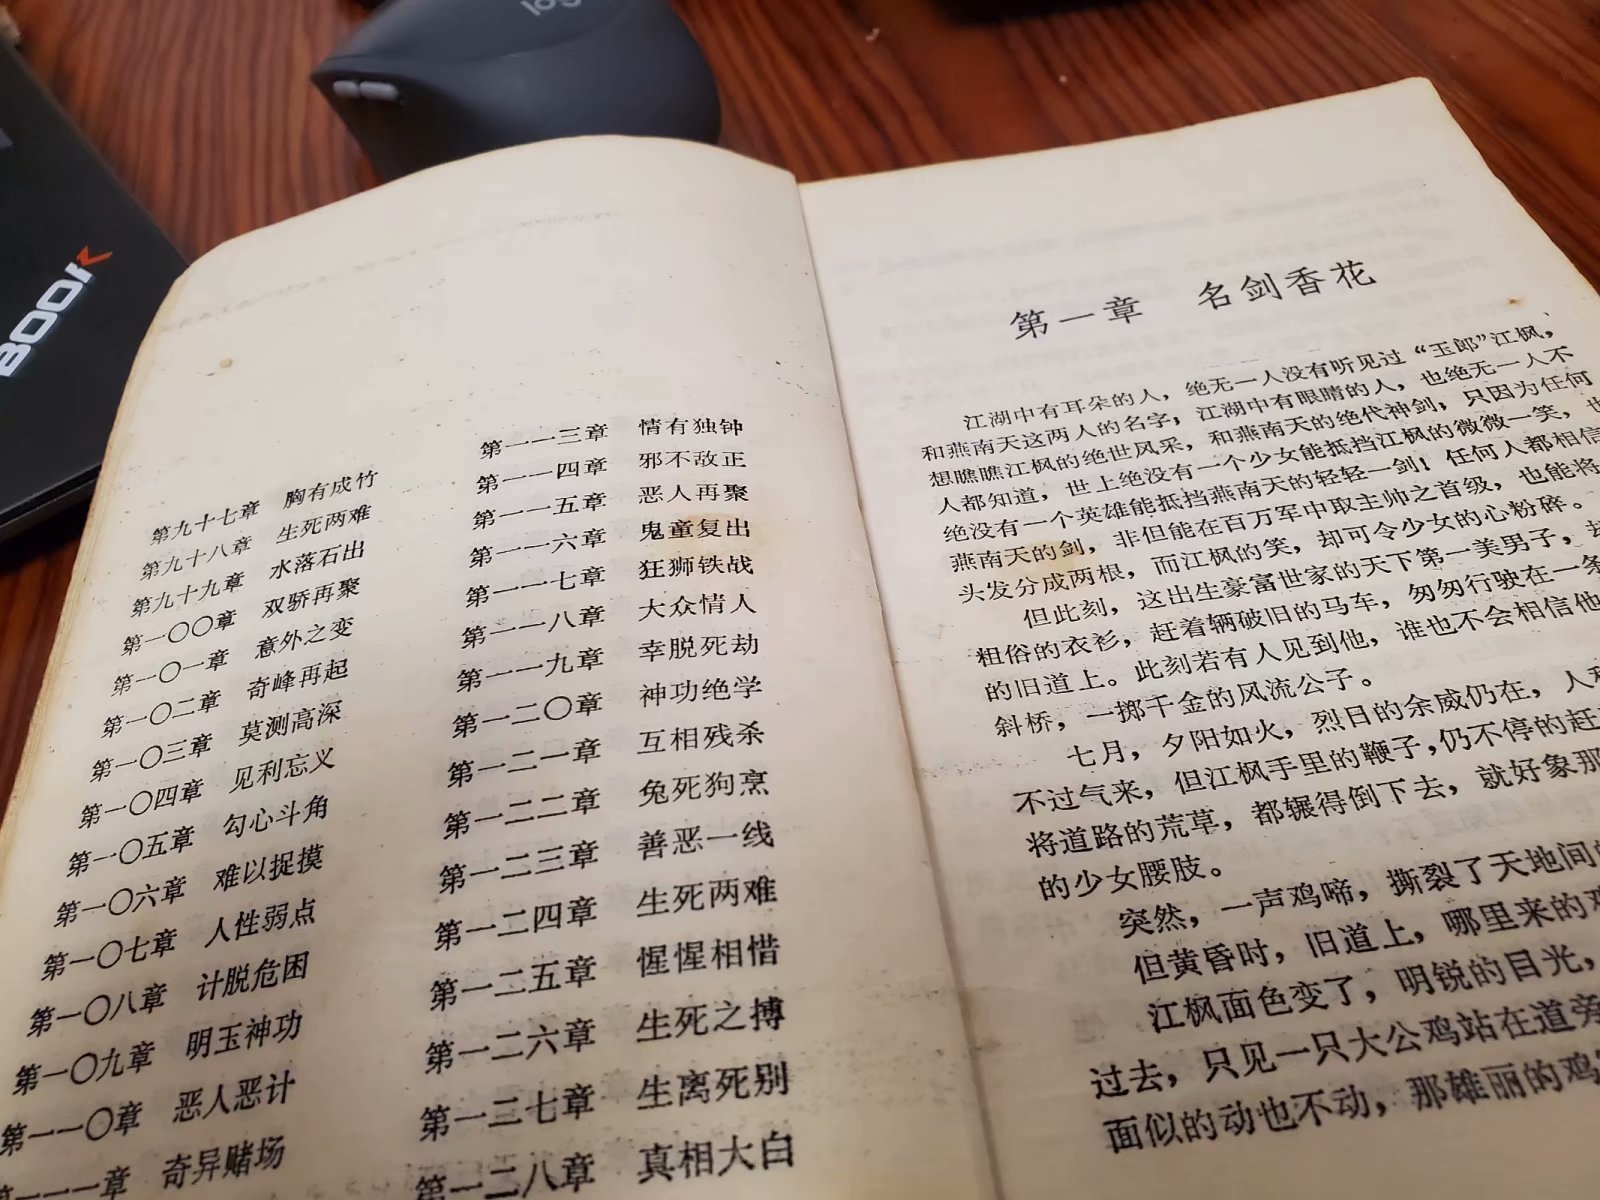 log
BOOK
第九十七章 胸有成竹
第九十八章 生死两难
第九十九章 水落石出
第一〇〇章 双骄再聚
第一〇一章 意外之变
第一〇二章 奇峰再起
第一〇三章 莫测高深
第一〇四章 见利忘义
第一〇五章 勾心斗角
第一〇六章 难以捉摸
第一〇七章 人性弱点
第一〇八章 计脱危困
第一〇九章 明玉神功
第一一〇章 恶人恶计
一一一章 奇异赌场
第一一三章 情有独钟
第一一四章 邪不敌正
第一一五章 恶人再聚
第一一六章 鬼童复出
第一一七章 狂狮铁战
第一一八章 大众情人
第一一九章 幸脱死劫
第一二〇章 神功绝学
第一二一章 互相残杀
第一二二章 兔死狗烹
第一二三章 善恶一线
第一二四章 生死两难
第一二五章 惺惺相惜
第一二六章 生死之搏
第一二七章 生离死别
第一二八章 真相大白
第一章 名剑香花
江湖中有耳朵的人，绝无一人没有听见过“玉郎”江枫，
和燕南天这两人的名字，江湖中有眼睛的人，也绝无一人不
想瞧瞧江枫的绝世风采，和燕南天的绝代神剑，只因为任何
人都知道，世上绝没有一个少女能抵挡江枫的微微一笑，也
绝没有一个英雄能抵挡燕南天的轻轻一剑！任何人都相信
燕南天的剑，非但能在百万军中取主帅之首级，也能将
头发分成两根，而江枫的笑，却可令少女的心粉碎。
但此刻，这出生豪富世家的天下第一美男子，却
粗俗的衣衫，赶着辆破旧的马车，匆匆行驶在一条
的旧道上。此刻若有人见到他，谁也不会相信他
斜桥，一掷千金的风流公子。
七月，夕阳如火，烈日的余威仍在，人和
不过气来，但江枫手里的鞭子，仍不停的赶
将道路的荒草，都辗得倒下去，就好象那
的少女腰肢。
突然，一声鸡啼，撕裂了天地间的
但黄昏时，旧道上，哪里来的鸡
江枫面色变了，明锐的目光，
过去，只见一只大公鸡站在道旁
面似的动也不动，那雄丽的鸡